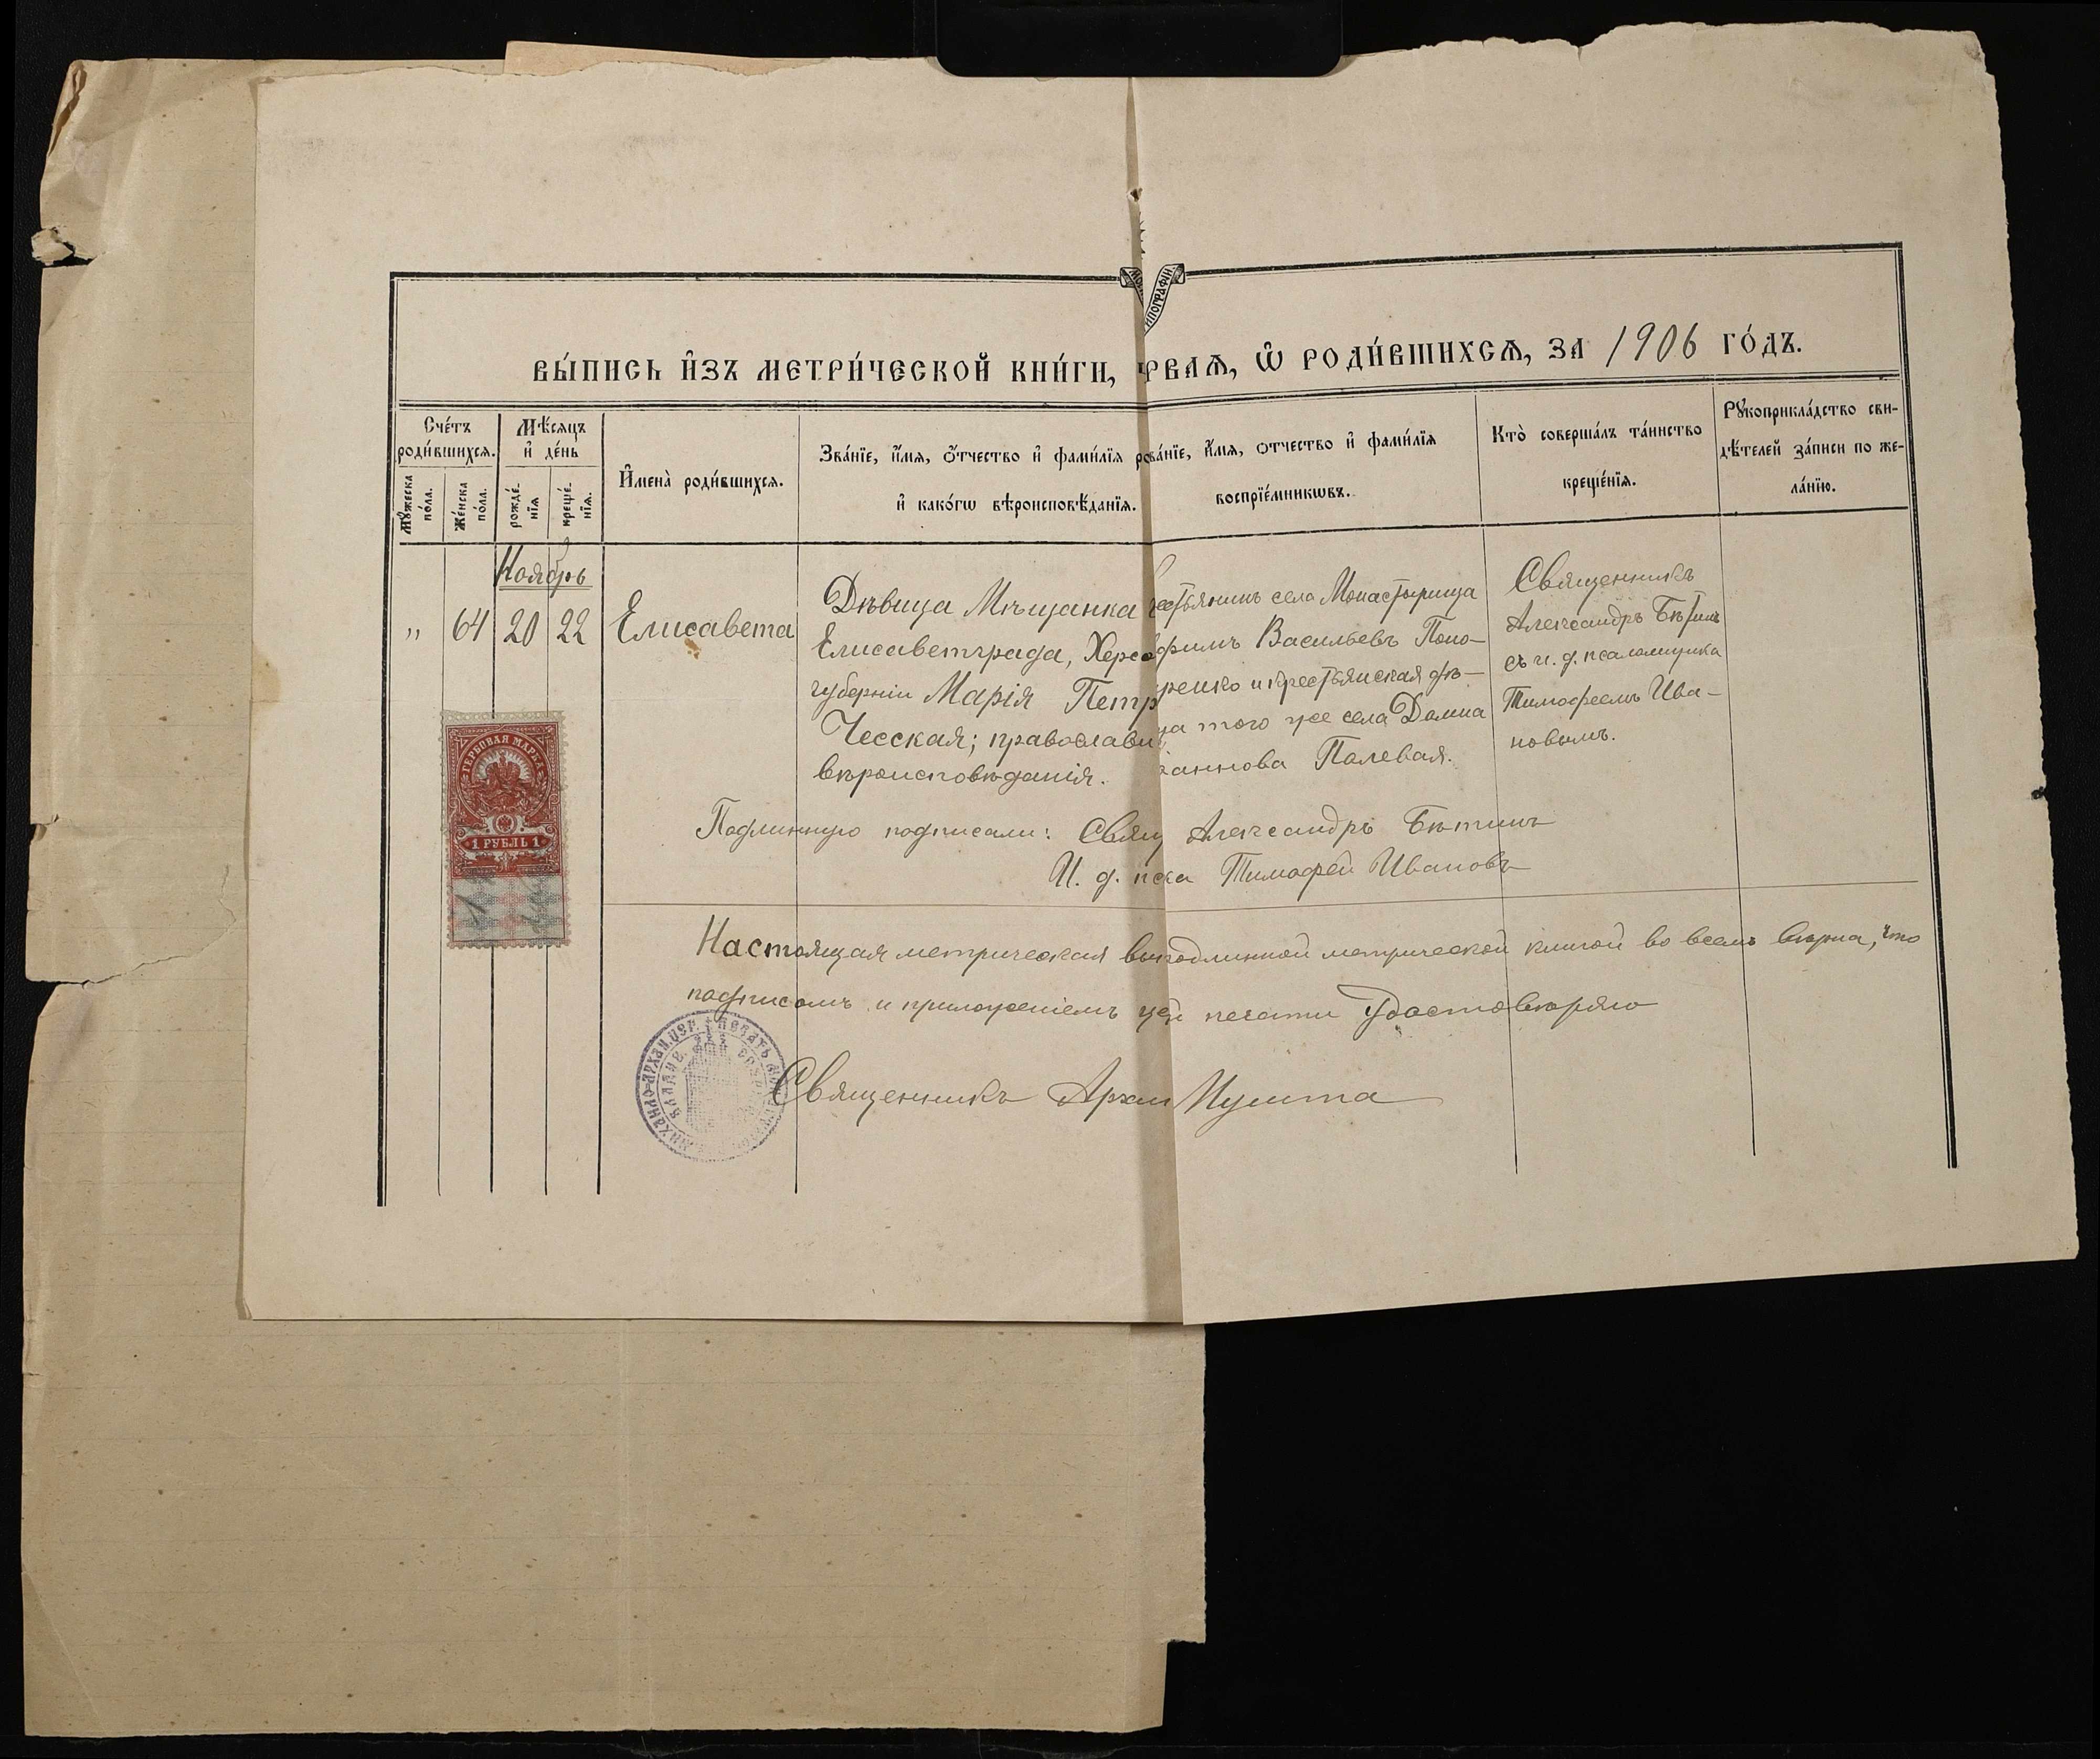 ИПОГРАФІИ
ВЫ́ПИСЬ И҆ЗЪ МЕТРИ́ЧЕСКОЙ КНИ́ГИ, РВАѦ, Ѿ РОДИ́ВШИХСѦ, ЗА 1906 ГО́ДЪ.
Сче́тъ роди́вшихся.
Мꙋ́жеска по́ла.
Же́нска по́ла.
Мѣ́сяцъ и҆ де́нь
рожде́-нїя
креще́-нїя.
И҆мена̀ роди́вшихся.
Зва́нїе, и҆́мя, ѻ҆́тчество и҆ фами́лїя ро
и҆ како́гѡ вѣроисповѣ́данїя.
ва́нїе, и҆́мя, отчество и҆ фами́лїя
воспрїе́мникѡвъ.
Кто̀ соверша́лъ та́инство
креще́нїя.
Рꙋкоприкла́дство сви-
дѣ́телей за́писи по же-
ла́нїю.
Ноябрь
" 64 20 22
Елисавета
Дѣвица Мѣщанка
Елисаветграда, Херсо
губерніи Марія Петр
Чесская; православн
вѣроисповѣданія.
естьянинъ села Монастырища
фимъ Васильевъ Поно-
ренко и крестьянская дѣ-
ца того же села Домна
аннова Полевая.
Священникъ
Александръ Бѣтинъ
съ и. д. псаломщика
Тимофеемъ Ива-
новымъ.
Подлинную подписали: Свящ Александръ Бѣтинъ
И. д. пс-ка Тимофей Ивановъ
ГЕРБОВАЯ МАРКА
1 РУБЛЬ 1
Настоящая метрическая вы подлинной метрической книгой во всемъ вѣрна, что
подписомъ и приложеніемъ це печати удостовѣряю
Священникъ
МИХАИЛО-АРХАН. ЦЕР. ПЕЧАТЬ